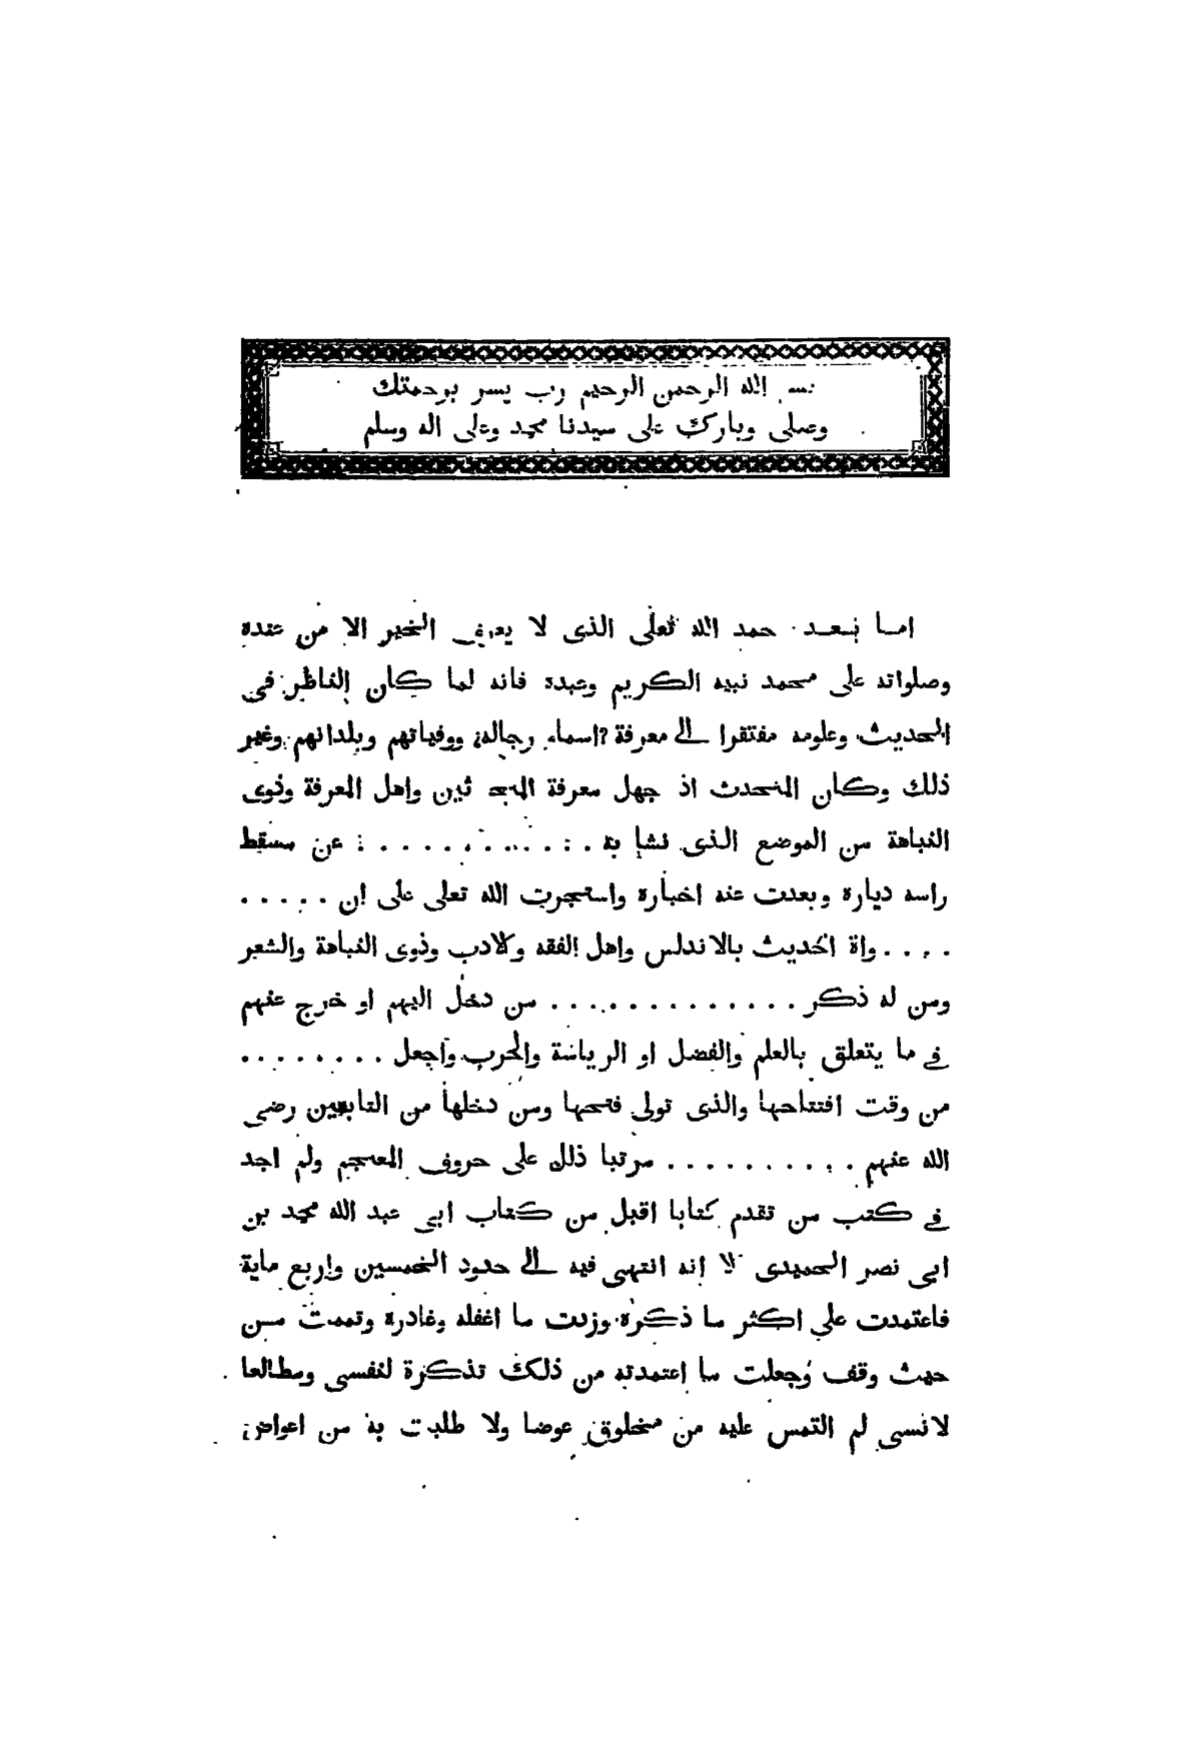 بسم الله الرحمن الرحيم رب يسر برحمتك
وصلى وبارك على سيدنا محمد وعلى اله وسلم
اما بعد حمد الله تعلى الذى لا يعرف الخير الا من عنده
وصلواته على محمد نبيه الكريم وعبده فانه لما كان الناظر فى
الحديث وعلومه مفتقرا الى معرفة اسماء رجاله ووفياتهم وبلدانهم وغير
ذلك وكان المتحدث اذ جهل معرفة المحدثين واهل المعرفة وذوى
النباهة من الموضع الذى نشا به . . . . . . . . . . . عن مسقط
راسه دياره وبعدت عنه اخباره واستجرت الله تعلى على ان . . . . .
. . . . واة الحديث بالاندلس واهل الفقه والادب وذوى النباهة والشعر
ومن له ذكر . . . . . . . . . . . . . من دخل اليهم او خرج عنهم
فى ما يتعلق بالعلم والفضل او الرياسة والحرب واجعل . . . . . . . .
من وقت افتتاحها والذى تولى فتحها ومن دخلها من التابعين رضى
الله عنهم . . . . . . . . . . مرتبا ذلك على حروف المعجم ولم اجد
فى كتب من تقدم كتابا اقبل من كتاب ابى عبد الله محمد بن
ابى نصر الحميدى الا انه انتهى فيه الى حدود الخمسين واربع ماية
فاعتمدت على اكثر ما ذكره وزدت ما اغفله وغادره وتممت من
حيث وقف وجعلت ما اعتمدته من ذلك تذكرة لنفسى ومطالعا
لانسى لم التمس عليه من مخلوق عوضا ولا طلبت به من اعواض